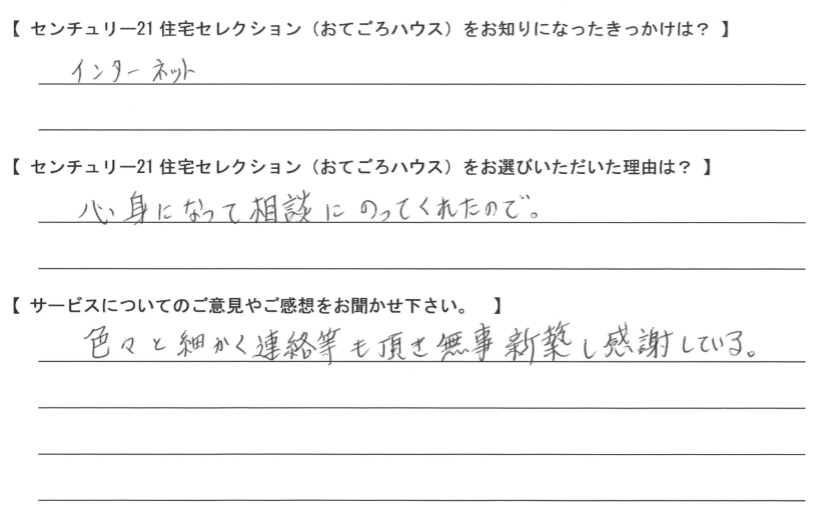 【 センチュリー21 住宅セレクション（おてごろハウス）をお知りになったきっかけは？ 】
インターネット
【 センチュリー21 住宅セレクション（おてごろハウス）をお選びいただいた理由は？ 】
心身になって相談にのってくれたので。
【 サービスについてのご意見やご感想をお聞かせ下さい。 】
色々と細かく連絡等も頂き無事新築し感謝している。